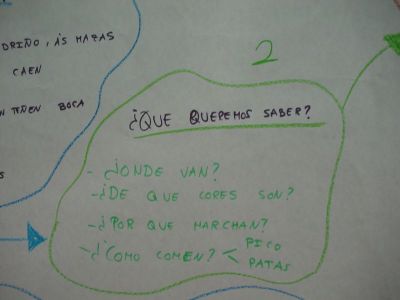 DRIÑO, ÁS MAZAS
CAEN
N TEÑEN BOCA
S
2
¿QUE QUEREMOS SABER?
- ¿ONDE VAN?
- ¿DE QUE CORES SON?
- ¿POR QUE MARCHAN?
- ¿COMO COMEN? < PICO
PATAS